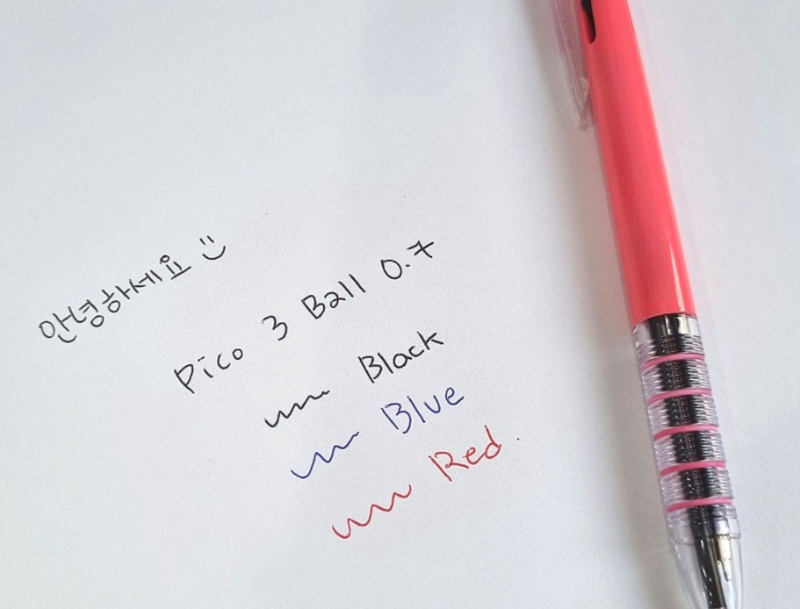 안녕하세요 :)
Pico 3 Ball 0.7
Black
Blue
Red.